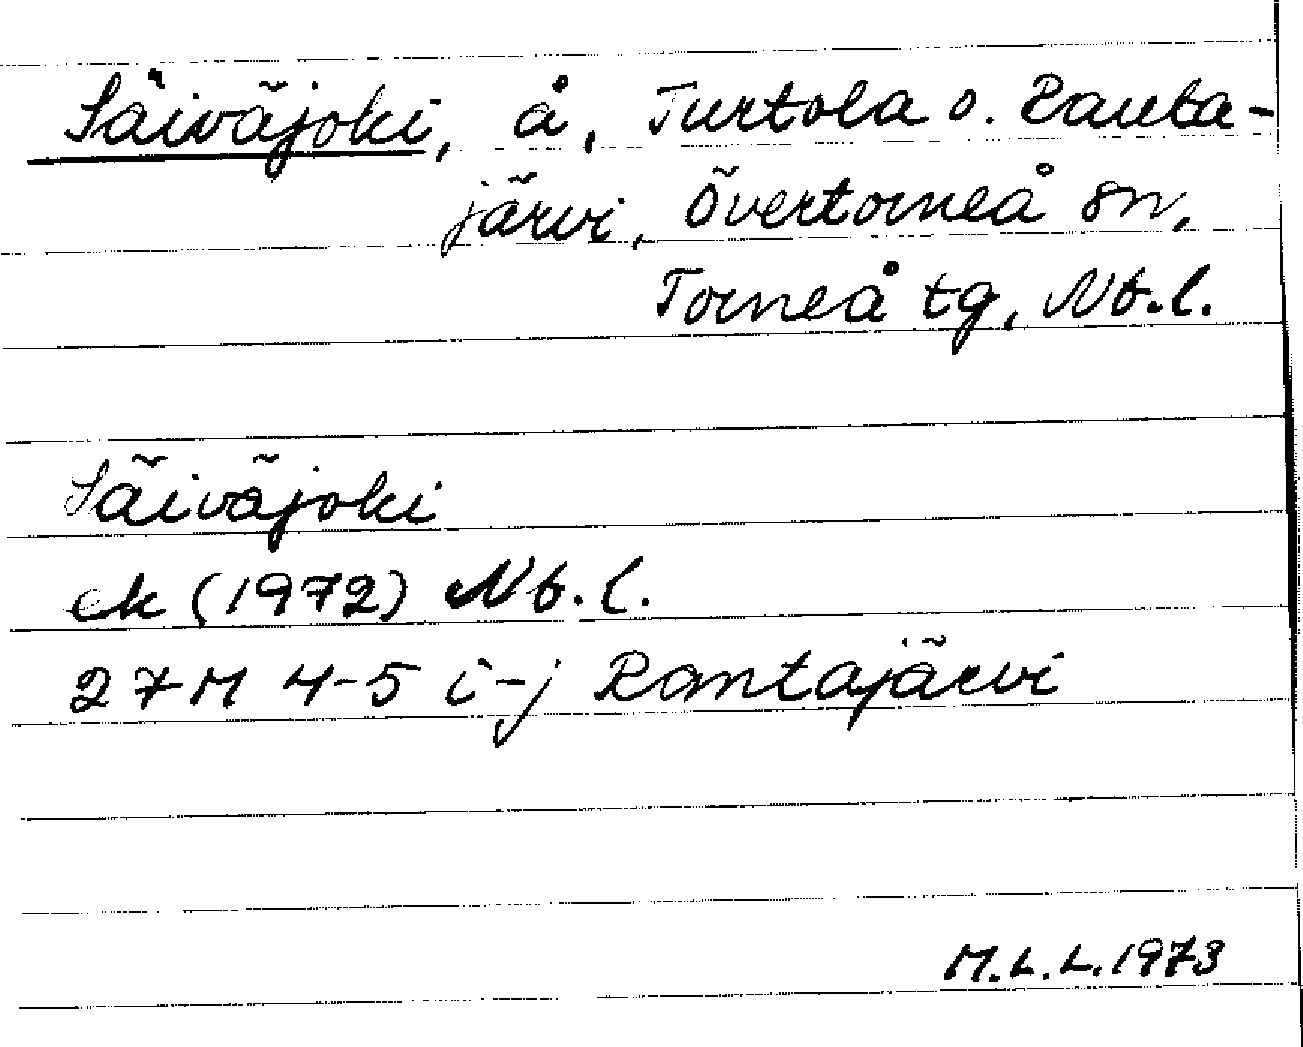 Säiväjoki, å, Turtola o. Ranta-
järvi, Övertorneå sn,
Torneå tg, Nb.l.
Säiväjoki
ek (1972) Nb.l.
27M 4-5 i-j Rantajärvi
M.L.L.1973